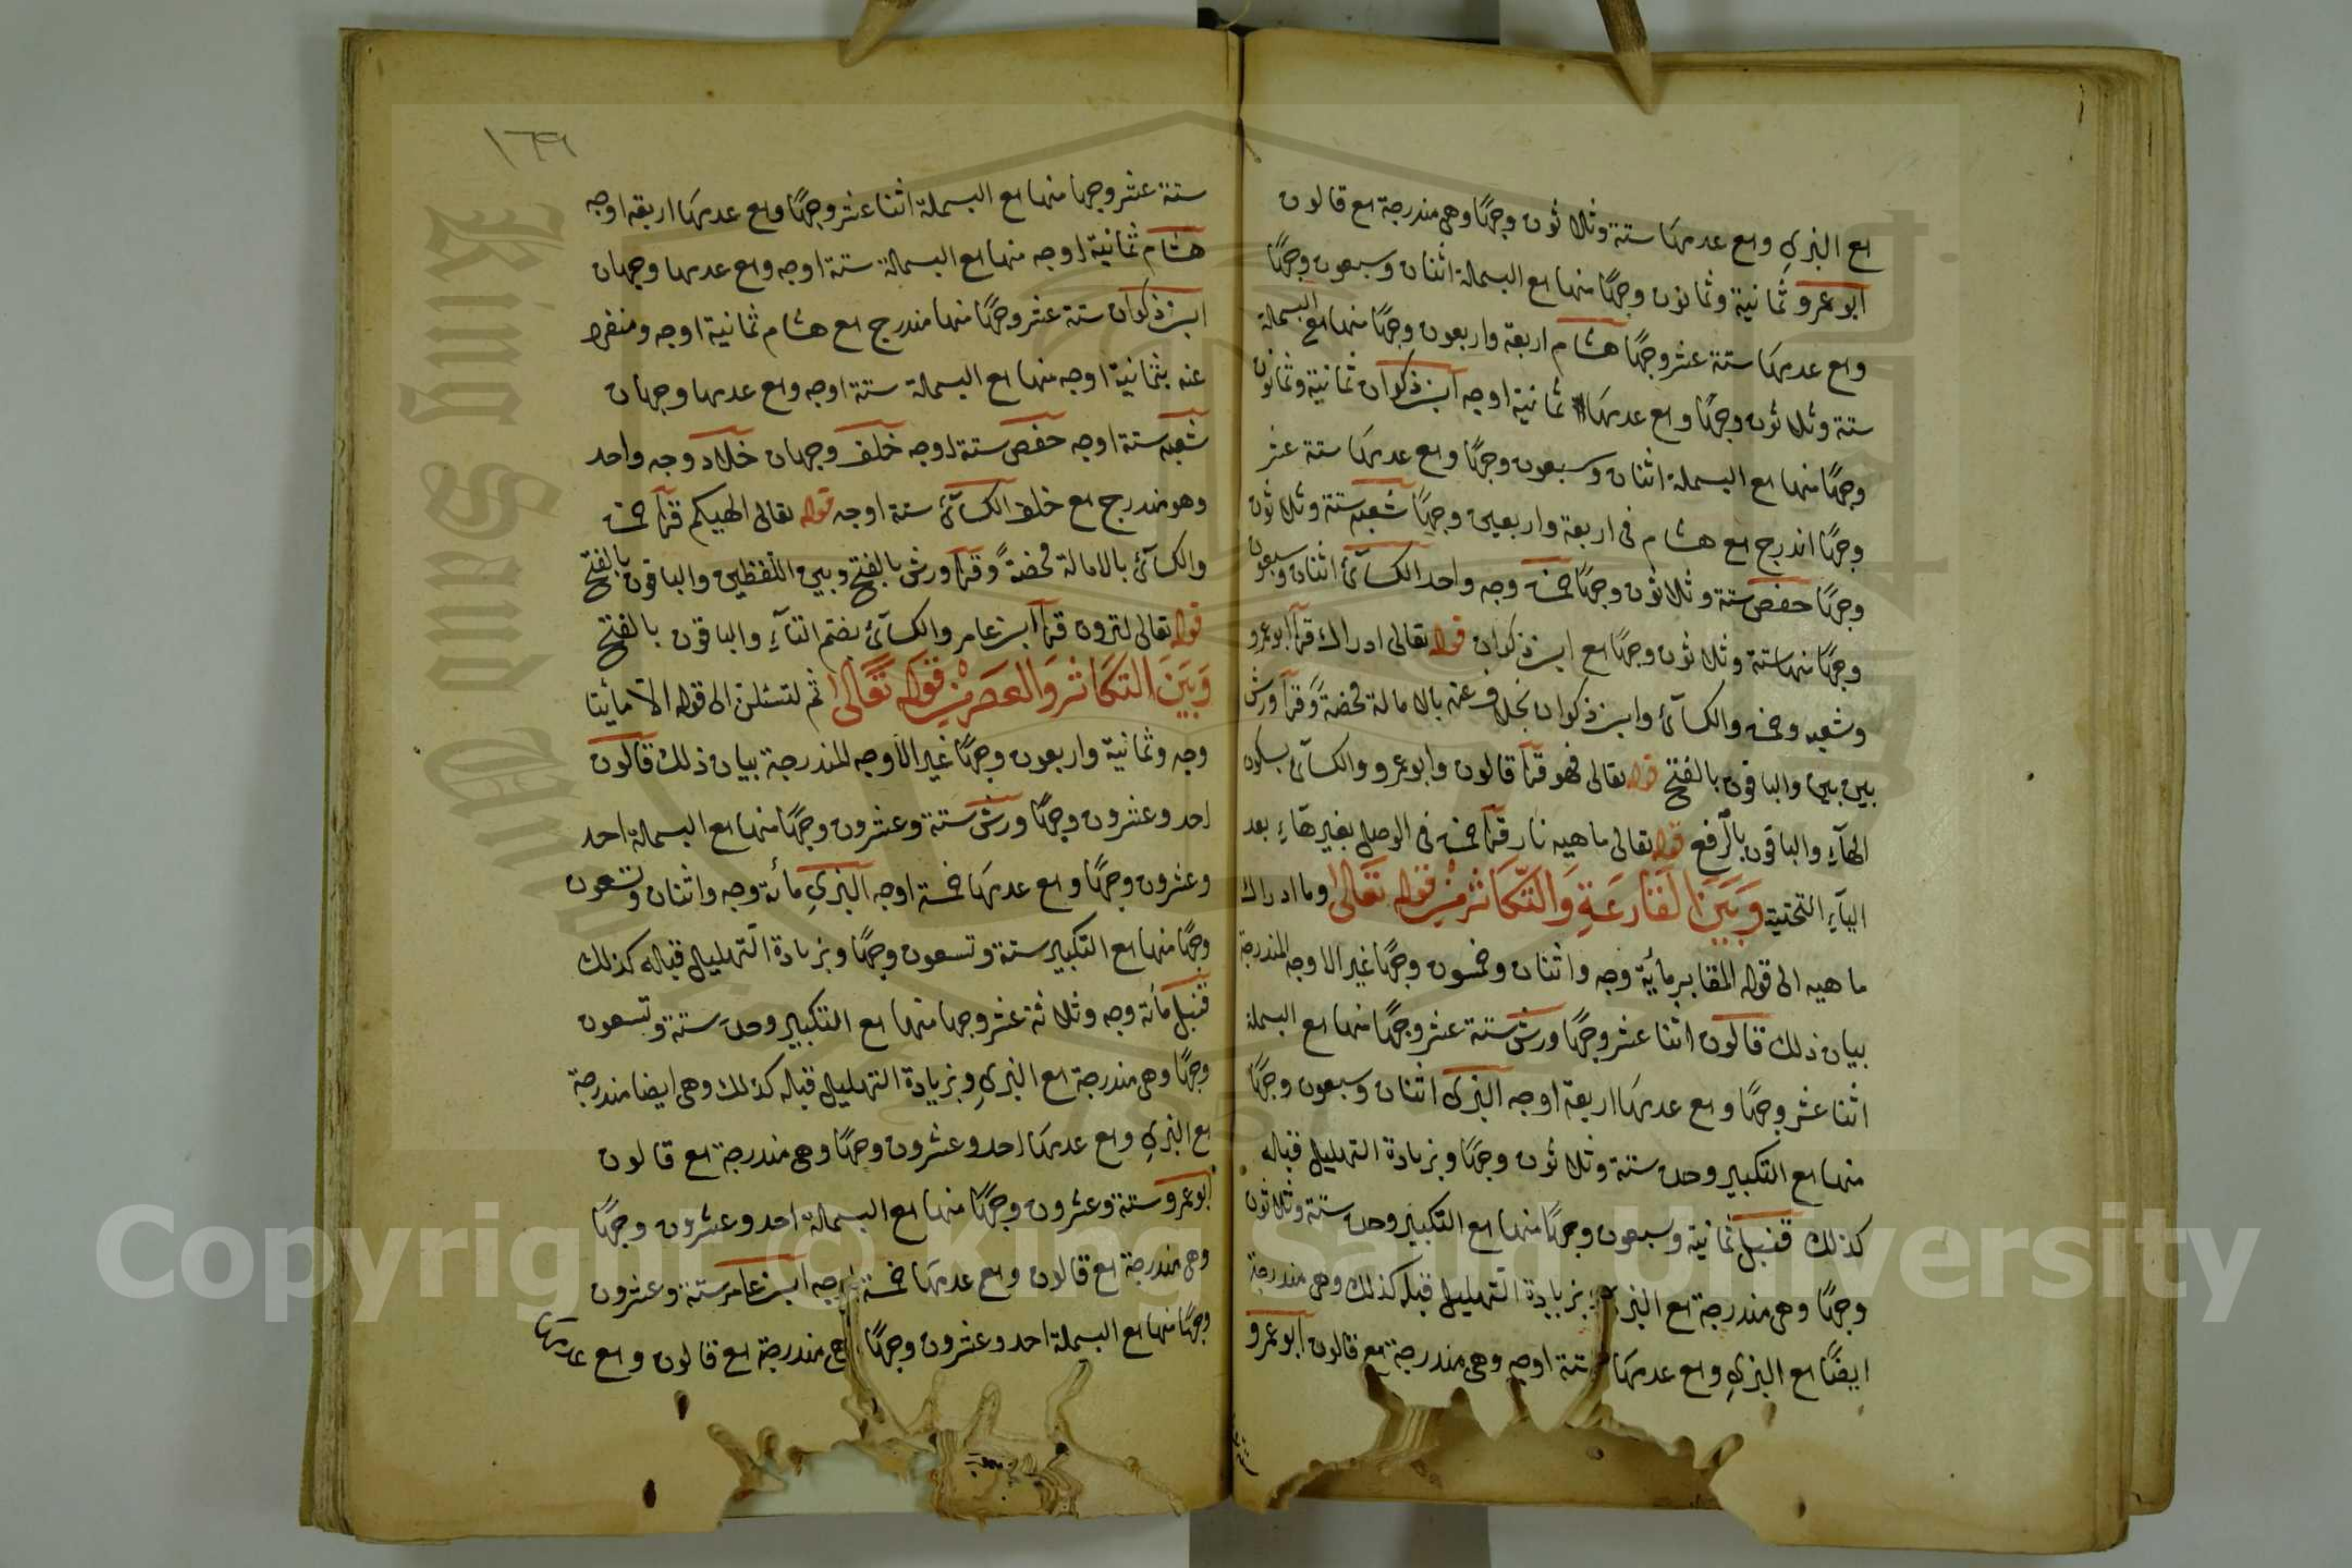 مع البزي ومع عدمها ستة وثلاثون وجهًا وهي مندرجة مع قالون
ابو عمرو ثمانية وثمانون وجهًا منها مع البسملة اثنان وسبعون وجهًا
ومع عدمها ستة عشر وجهًا هشام اربعة واربعون وجهًا منها مع البسملة
ستة وثلاثون وجهًا ومع عدمها ثمانية اوجه ابن ذكوان ثمانية وثمانون
وجهًا منها مع البسملة اثنان وسبعون وجهًا ومع عدمها ستة عشر
وجهًا اندرج مع هشام في اربعة واربعين وجهًا شعبه ستة وثلاثون
وجهًا حفص ستة وثلاثون وجهًا حمزة وجه واحد الكسآئ اثنان وسبعون
وجهًا منها ستة وثلاثون وجهًا مع ابن ذكوان قوله تعالى ادراك قرأ ابو عمرو
وشعبه وحمزة والكسآئ وابن ذكوان بخلاف عنه بالامالة محضةً وقرأ ورش
بين بين والباقون بالفتح قوله تعالى فهو قرأ قالون وابو عمرو والكسآئ بسكون
الهآء والباقون بالرفع قوله تعالى ماهيه نار قرأ حمزة في الوصل بغير هآء بعد
اليآء التحتية وَبَيْنَ القَارِعَةِ وَالتَّكَاثُر مِنْ قوله تَعَالى وما ادراك
ما هيه الى قوله المقابر مائة وجه واثنان وخمسون وجهًا غير الاوجه المندرجة
بيان ذلك قالون اثنا عشر وجهًا ورش ستة عشر وجهًا منها مع البسملة
اثنا عشر وجهًا ومع عدمها اربعة اوجه البزى اثنان وسبعون وجهًا
منها مع التكبير وحده ستة وثلاثون وجهًا وبزيادة التهليل قبله
كذلك قنبل ثمانية وسبعون وجهًا منها مع التكبير وحده ستة وثلاثون
وجهًا وهي مندرجة مع البزي وبزيادة التهليل قبله كذلك وهي مندرجة
ايضًا مع البزي ومع عدمها ستة اوجه وهي مندرجة مع قالون ابو عمرو
١٦٩
ستة عشر وجها منها مع البسملة اثنا عشر وجهًا ومع عدمها اربعة اوجه
هشام ثمانية اوجه منها مع البسملة ستة اوجه ومع عدمها وجهان
ابن ذكوان ستة عشر وجهًا منها مندرج مع هشام ثمانية اوجه ومنفرد
عنه بثمانية اوجه منها مع البسملة ستة اوجه ومع عدمها وجهان
شعبه ستة اوجه حفص ستة اوجه خلف وجهان خلاد وجه واحد
وهو مندرج مع خلف الكسآئ ستة اوجه قوله تعالى الهيكم قرأ حمزة
والكسآئ بالامالة محضةً وقرأ ورش بالفتح وبين اللفظين والباقون بالفتح
قوله تعالى لترون قرأ ابن عامر والكسآئ بضم التآء والباقون بالفتح
وَبَيْنَ التكَاثر وَالعصَر مِنْ قَوله تَعَالى ثم لتسئلن الى قوله الا مائتا
وجه وثمانية واربعون وجهًا غير الاوجه المندرجة بيان ذلك قالون
احد وعشرون وجهًا ورش ستة وعشرون وجهًا منها مع البسملة احد
وعشرون وجهًا ومع عدمها خمسة اوجه البزي مأئة وجه واثنان وتسعون
وجهًا منها مع التكبير ستة وتسعون وجهًا وبزيادة التهليل قبله كذلك
قنبل مأئة وجه وثلاثة عشر وجها منها مع التكبير وحده ستة وتسعون
وجهًا وهي مندرجة مع البزي وبزيادة التهليل قبله كذلك وهي ايضا مندرجة
مع البزي ومع عدمها احد وعشرون وجهًا وهي مندرجة مع قالون
ابو عمرو ستة وعشرون وجهًا منها مع البسملة احد وعشرون وجهًا
وهي مندرجة مع قالون ومع عدمها خمسة اوجه ابن عامر ستة وعشرون
وجهًا منها مع البسملة احد وعشرون وجهًا وهي مندرجة مع قالون ومع عدمها
King Saud University
Copyright © King Saud University
1957